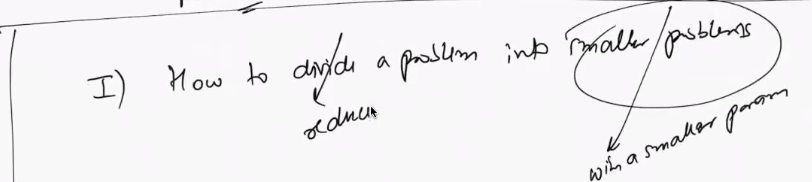 I) How to divide a problem into smaller problems
reduce
with a smaller param